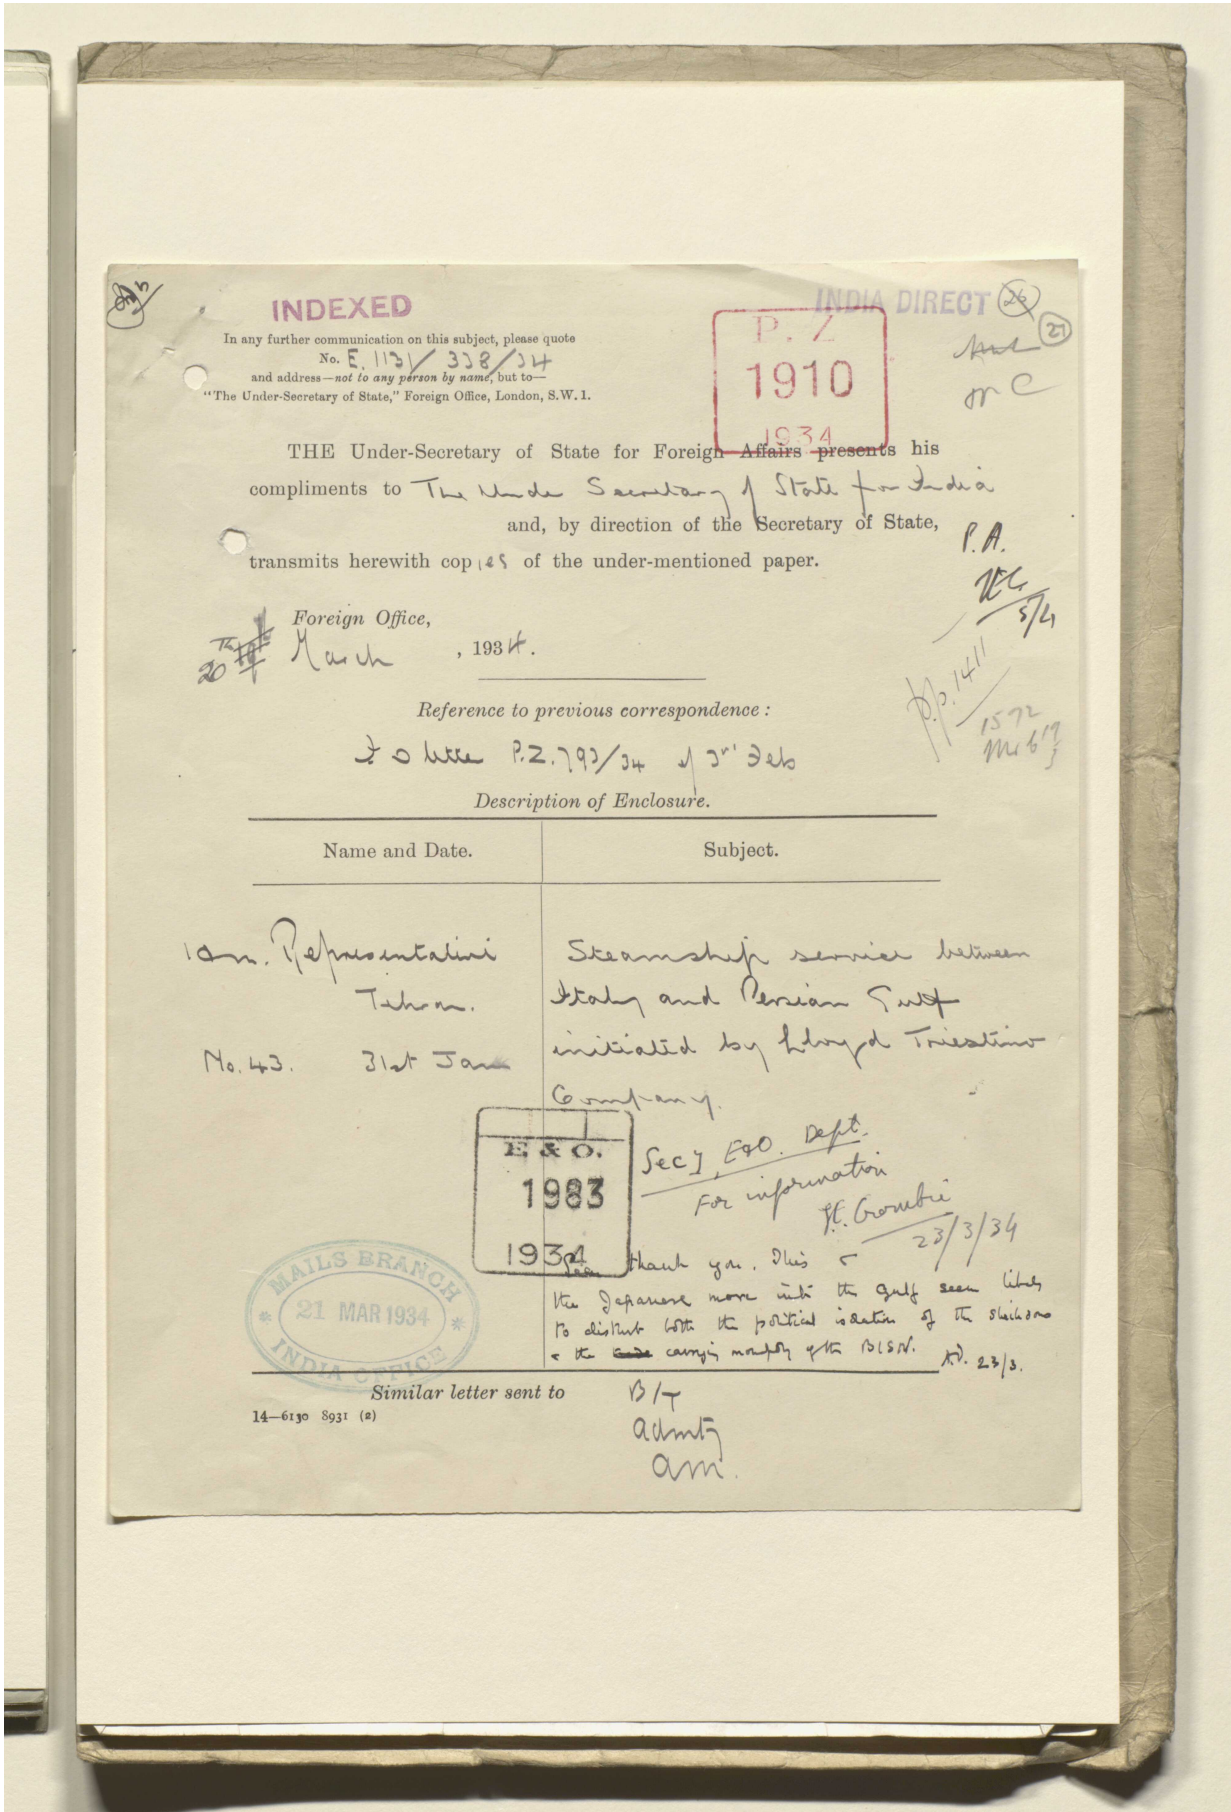 INDEXED
INDIA DIRECT
26
27
In any further communication on this subject, please quote
No. E. 1131/338/34
and address—not to any person by name, but to—
"The Under-Secretary of State," Foreign Office, London, S.W. 1.
P. Z
1910
1934
THE Under-Secretary of State for Foreign Affairs presents his
compliments to The Under Secretary of State for India
and, by direction of the Secretary of State,
transmits herewith copies of the under-mentioned paper.
P.A.
5/4
Foreign Office,
20th March, 1934.
p.p. 1411
1572
Reference to previous correspondence:
I O letter P.Z. 793/34 of 3rd Feb
Description of Enclosure.
Name and Date.
Subject.
Representative
Tehran.
No. 43. 31st Jan
Steamship service between
Italy and Persian Gulf
initiated by Lloyd Triestino
Company.
E. & O.
1983
1934
Secy, E&O. Dept.
For information
H. Crombie
23/3/34
Seen thank you. This &
the Japanese move into the Gulf seem likely
to disturb both the political isolation of the
& the carrying monopoly of the BISN. 23/3.
MAILS BRANCH
21 MAR 1934
INDIA OFFICE
Similar letter sent to
B/T
Admty
AM.
14—6130 8931 (2)